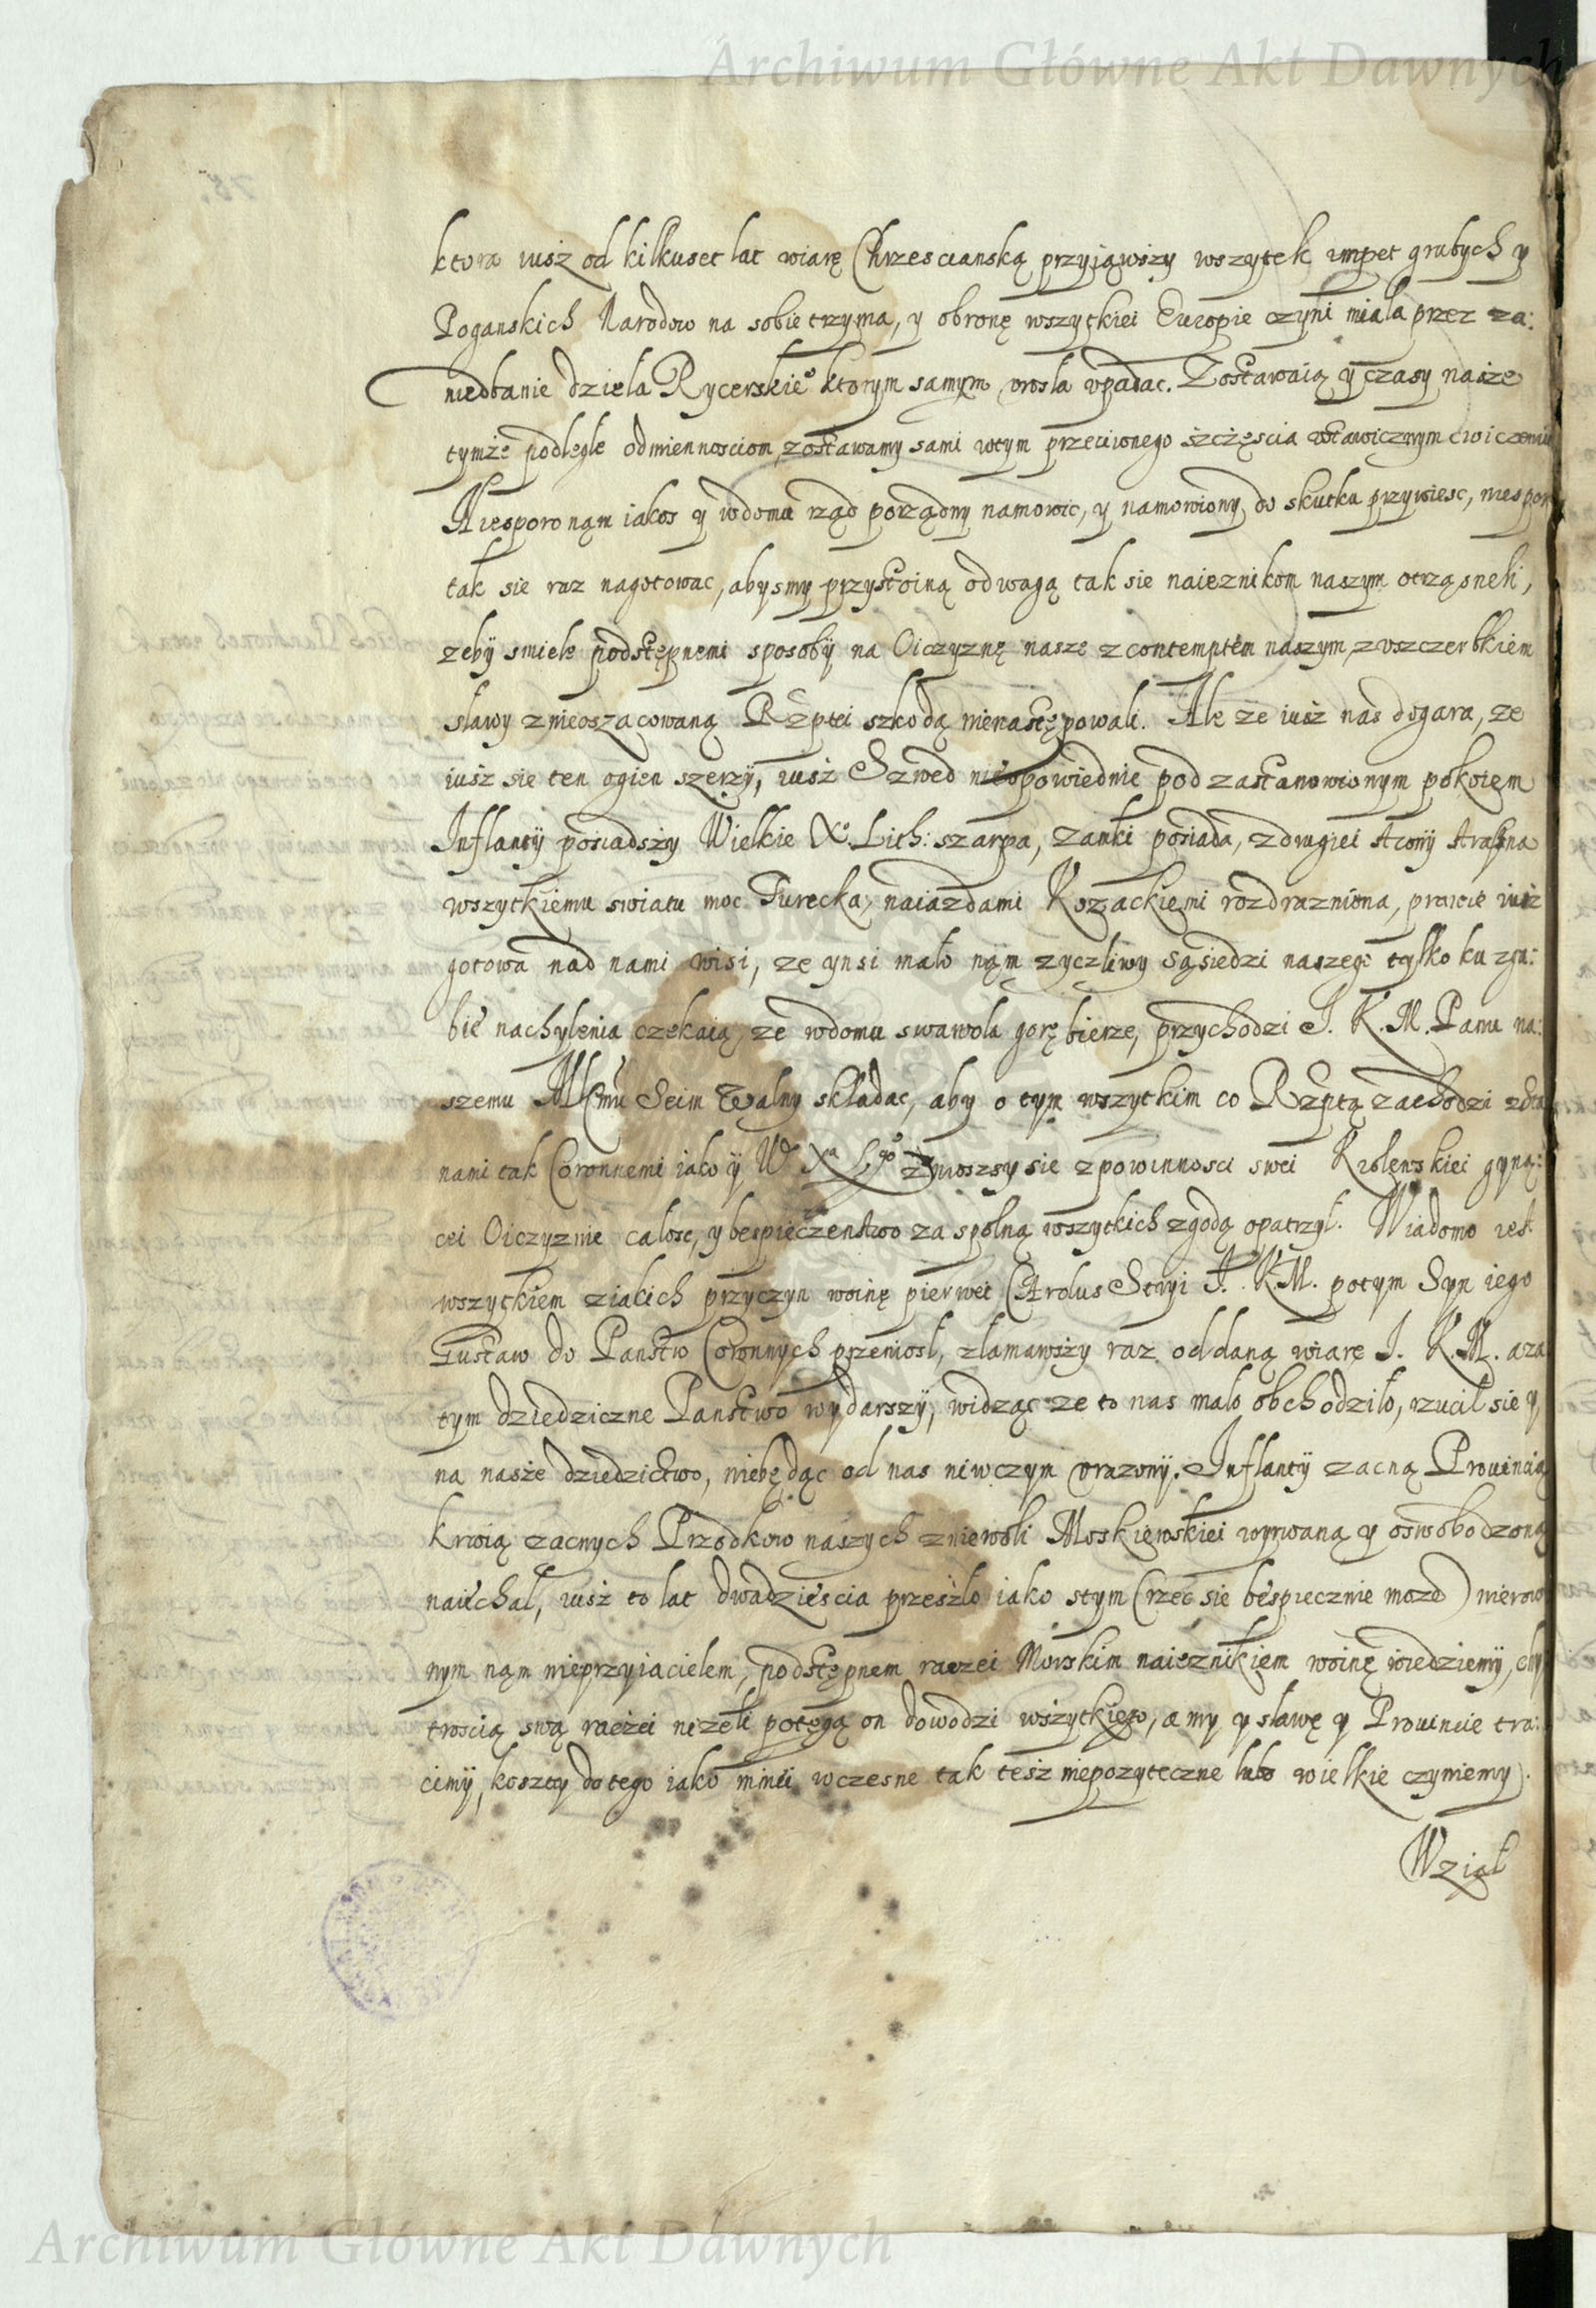 Archiwum Główne Akt Dawnych
ktora iusz od kilkuset lat wiarę Chrzescianską przyiąwszy wszytek impet grubych y
Poganskich Narodow na sobie trzyma, y obronę wszytkiei Europie czyni miala przez za:
niedbanie dziela Rycerskie° ktorym samym urosla upadac. Zostawaią y czasy nasze
tymże podlegle odmiennosciom, zostawamy sami wtym przeciwnego szczęscia ustawicznym cwiczeniu
Niesporo nąm iakos y wdomu rząd porządny namowic, y namowiony do skutku przywiesc, niesporo
tak sie raz nagotowac, abysmy przystoiną odwagą tak sie naieznikom naszym otrząsneli,
zebÿ smiele podstępnemi sposobÿ na Oiczyznę nasze z contemptem naszym, z uszczerbkiem
slawy z nieoszacowaną Rzptei szkodą nienastępowali. Ale ze iusz nas dogara, ze
iusz sie ten ogien szerzÿ, iusz Szwed nieopowiednie pod zastanowionym pokoiem
Inflantÿ posiadszy Wielkie X° Lith: szarpa, zamki posiada, z drugiei stronÿ straszna
wszytkiemu swiatu moc Turecka, naiazdami Kozackiemi rozdrazniona, prawie iusz
gotowa nad nami wisi, ze ynsi malo nąm zyczliwy sąsiedzi naszego tylko ku zgu:
bie nachylenia czekaią, ze wdomu swawola gorę bierze, przychodzi J. K. M. Panu na:
szemu Mcmu Seim Walny skladac, aby o tym wszytkim co Rzptą zachodzi z sta
nami tak Coronnemi iako ÿ W° Xa L°go zniosszy sie z powinnosci swei Krolewskiei gyną:
cei Oiczyznie calosc, y bespieczenstwo za spolną wszytkich zgodą opatrzyl. Wiadomo iest
wszytkiem z iakich przyczyn woinę pierwei Carolus Stryi J. K. M. potym Syn iego
Gustaw do Panstw Coronnych przeniosl, zlamawszy raz oddaną wiarę J. K. M. a za
tym dziedziczne Panstwo wydarszÿ, widząc ze to nas malo obchodzilo, rzucil sie y
na nasze dziedzictwo, niebędąc od nas niwczym urazonÿ. Inflantÿ zacną Prouincią
krwią zacnych Przodkow naszych z niewoli Moskiewskiei wyrwaną y oswobodzoną
naiechal, iusz to lat dwadziescia przeszlo iako stym (rzec sie bespiecznie moze) nierow
nym nąm nieprzyiacielem, podstępnem raczei Morskim naieznikiem woinę wiedziemÿ, chy
troscią swą raczei nizeli potęgą on dowodzi wszytkiego, a my y slawę y Prouincie tra:
cimÿ, koszty do tego iako mniei wczesne tak tesz niepozyteczne lubo wielkie czyniemy.
Wziąl
Archiwum Główne Akt Dawnych